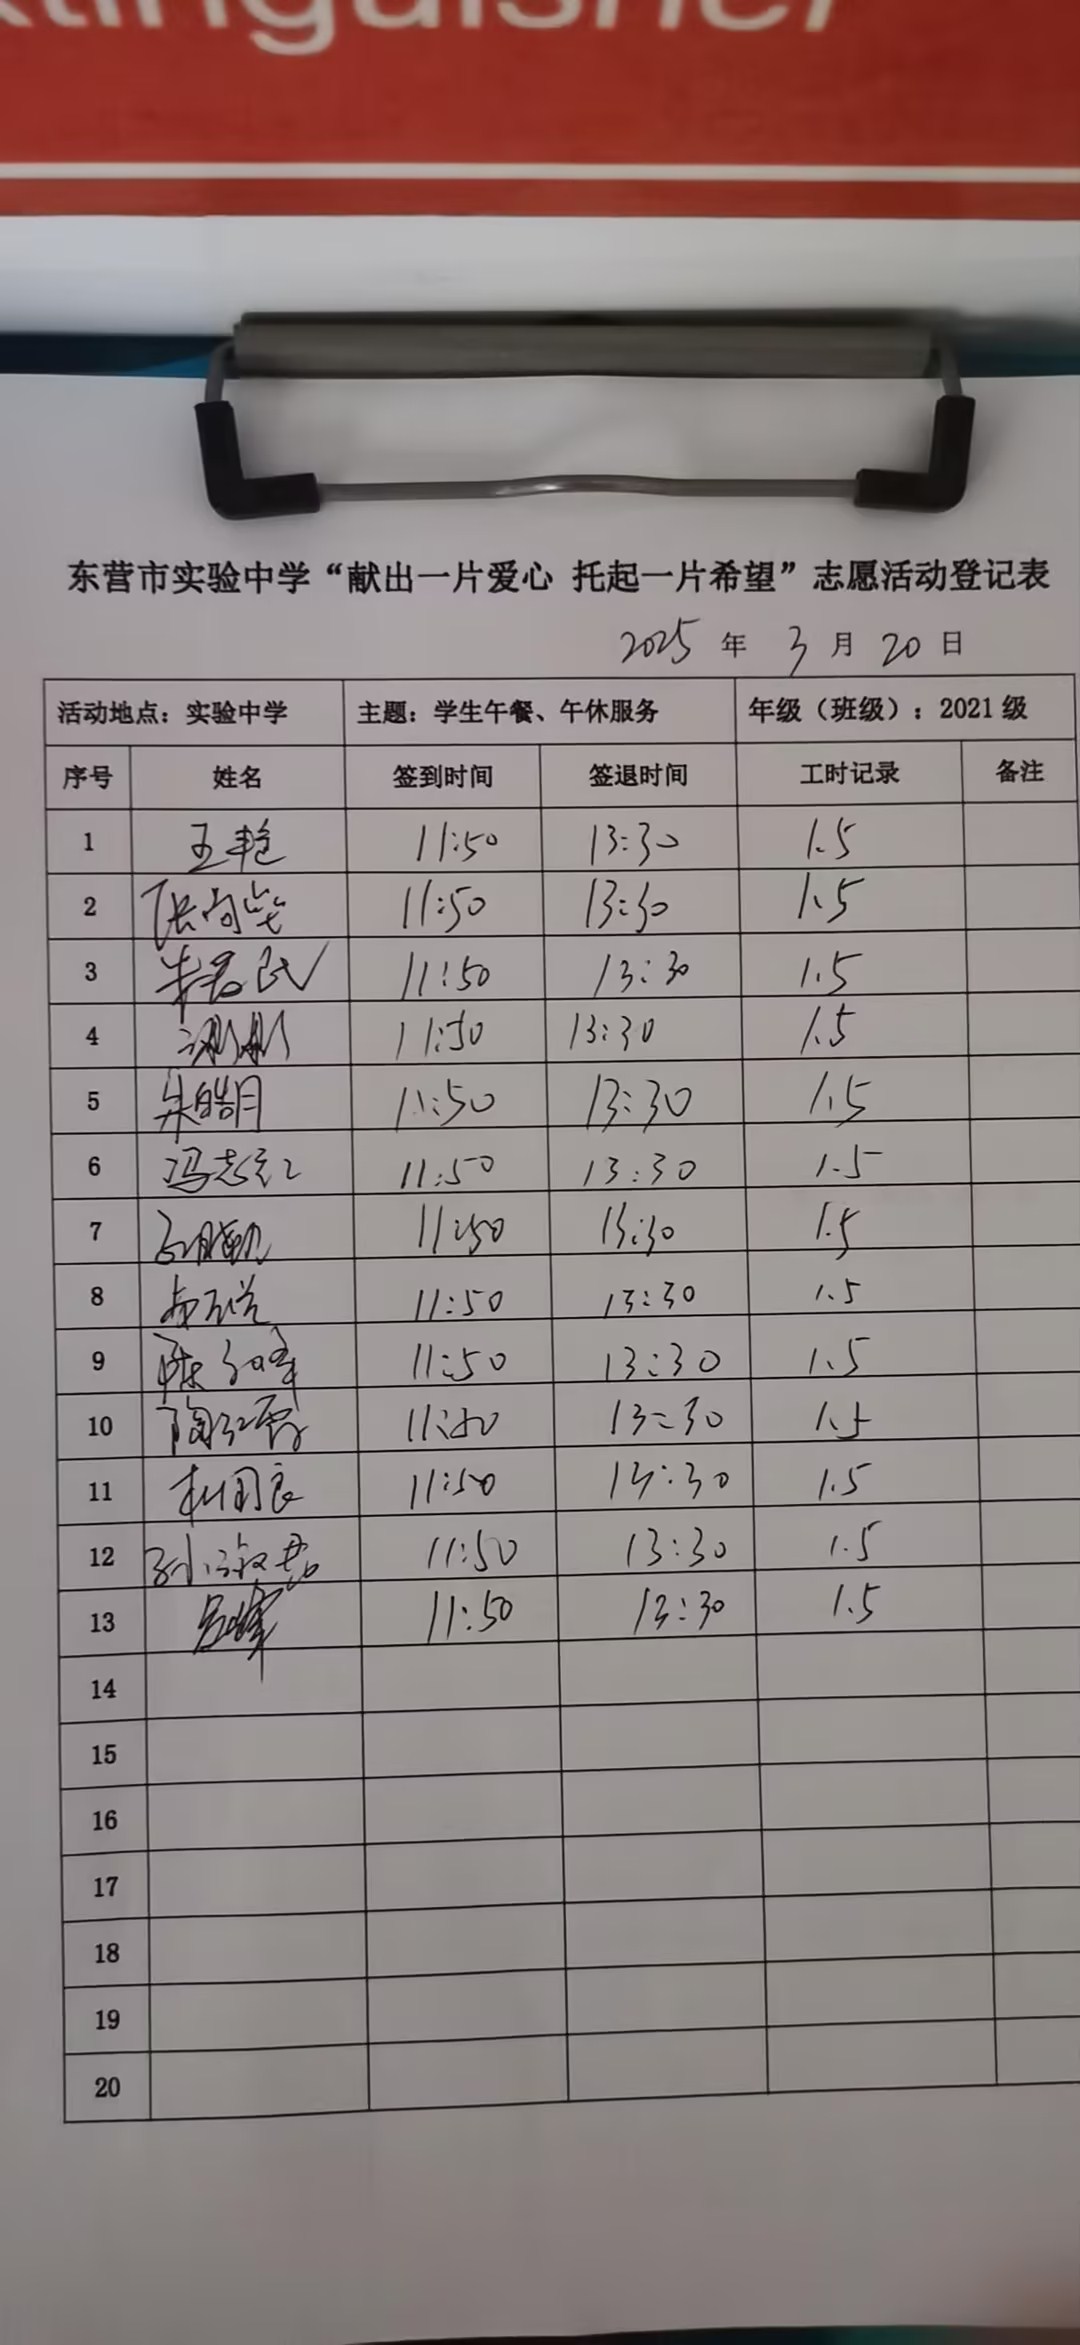 东营市实验中学“献出一片爱心 托起一片希望”志愿活动登记表
2025 年 3 月 20 日
活动地点：实验中学 主题：学生午餐、午休服务 年级（班级）：2021 级
序号 姓名 签到时间 签退时间 工时记录 备注
1 王艳 11:50 13:30 1.5
2 11:50 13:30 1.5
3 11:50 13:30 1.5
4 11:50 13:30 1.5
5 朱皓月 11:50 13:30 1.5
6 冯志红 11:50 13:30 1.5
7 11:50 13:30 1.5
8 11:50 13:30 1.5
9 11:50 13:30 1.5
10 陶红霞 11:50 13:30 1.5
11 杜国良 11:50 13:30 1.5
12 孙淑君 11:50 13:30 1.5
13 11:50 13:30 1.5
14
15
16
17
18
19
20